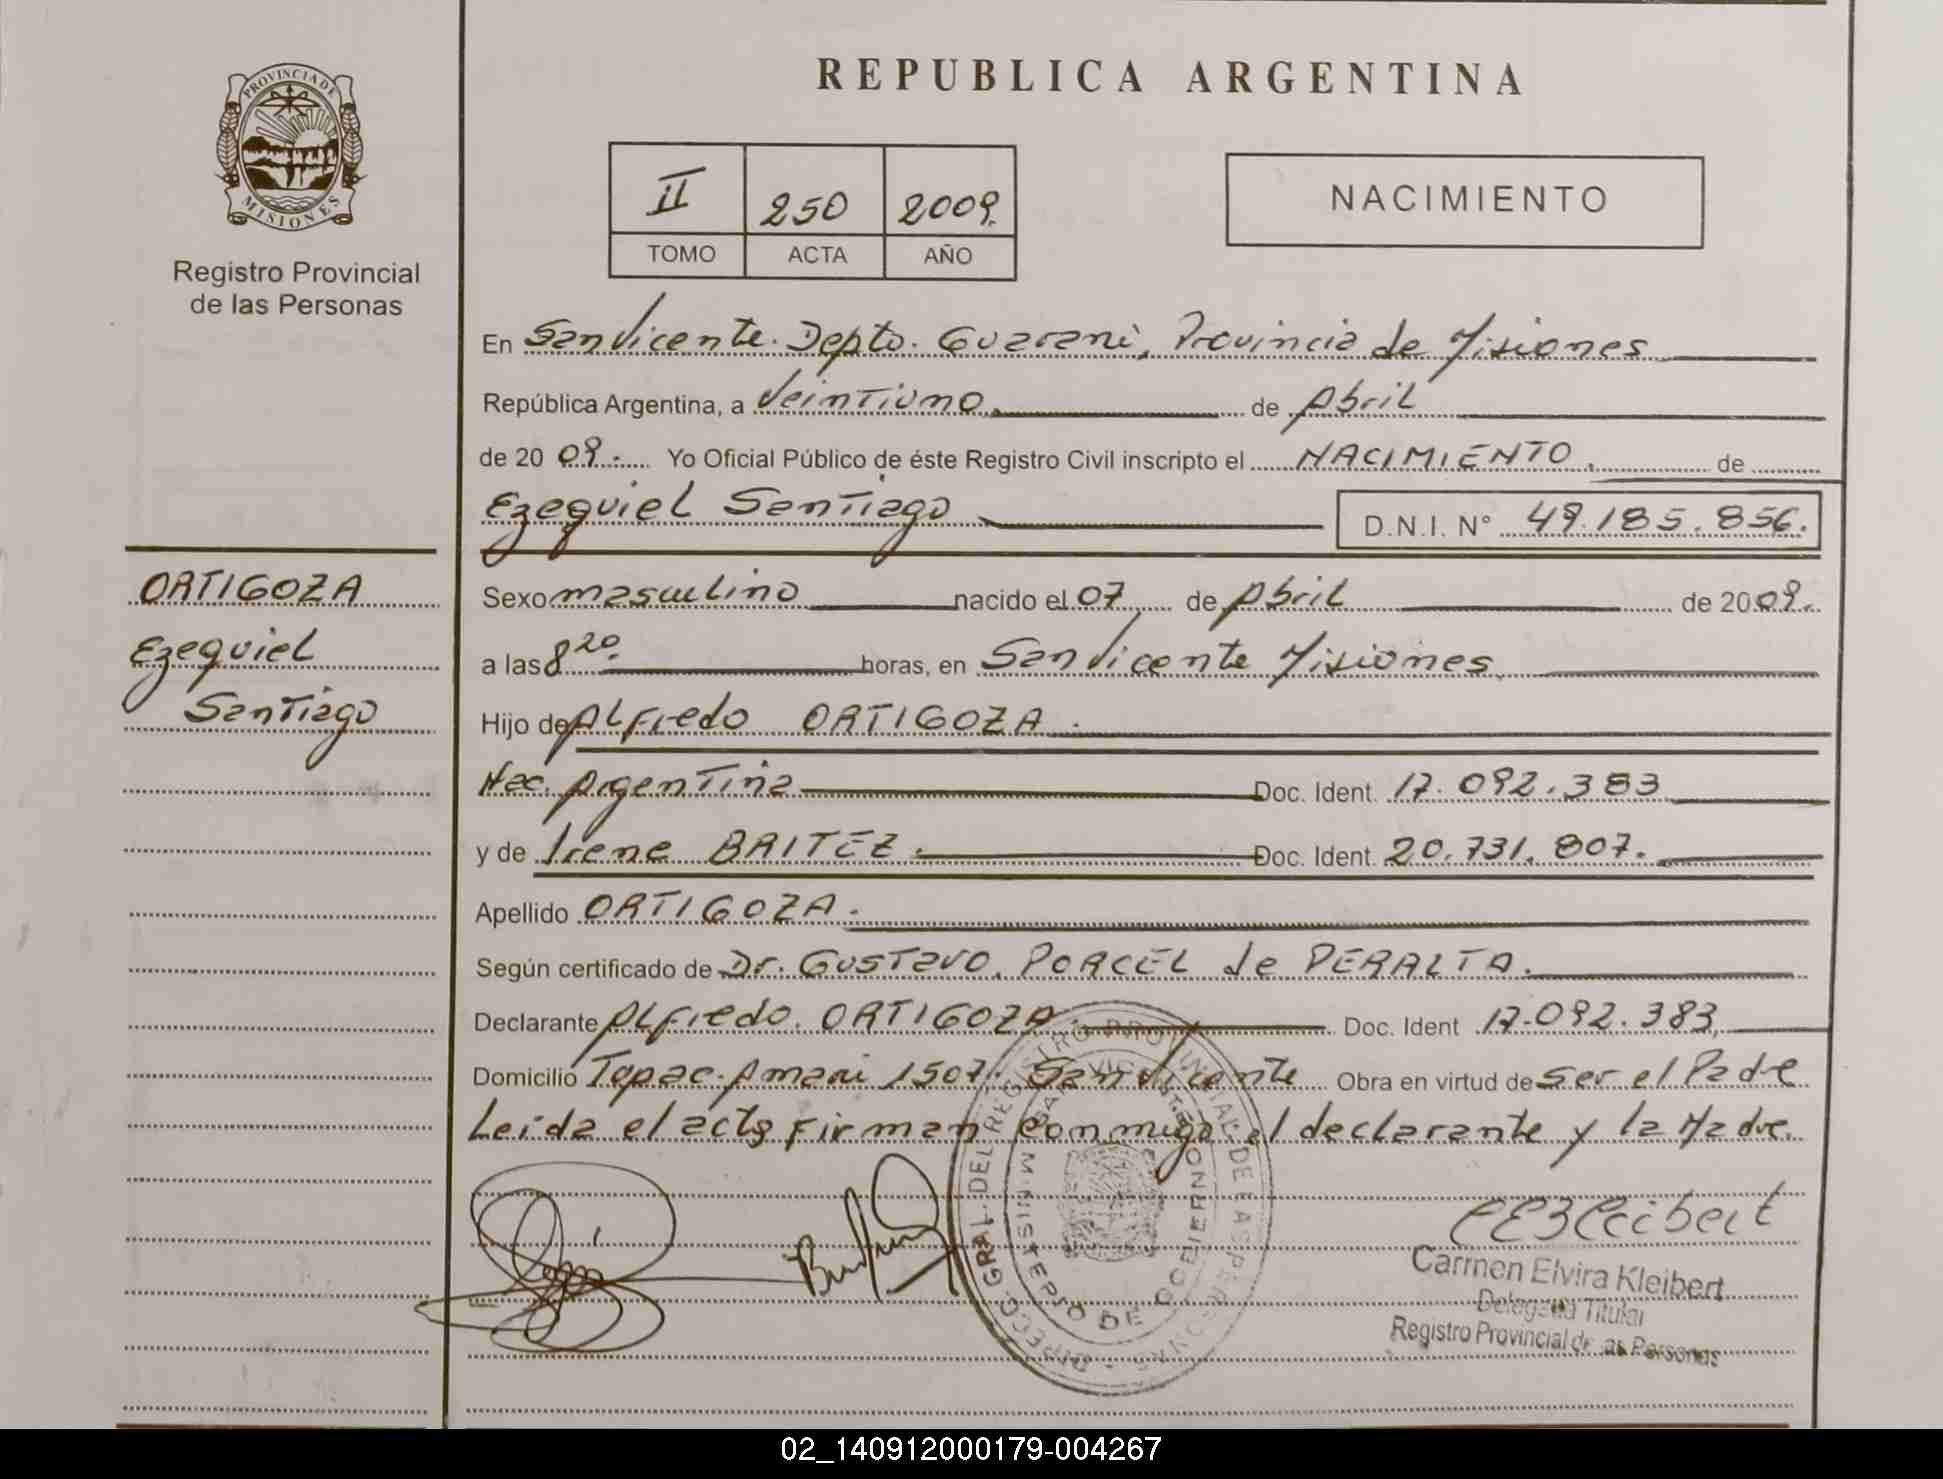 PROVINCIA DE
MISIONES
Registro Provincial
de las Personas
REPUBLICA ARGENTINA
II 250 2009.
TOMO ACTA AÑO
NACIMIENTO
En San Vicente. Depto. Guarani, Provincia de Misiones
República Argentina, a Veintiuno de Abril
de 20 09. Yo Oficial Público de éste Registro Civil inscripto el NACIMIENTO. de
Ezequiel Santiago D.N.I. N° 49.185.856.
ORTIGOZA
Ezequiel
Santiago
Sexo masculino nacido el 07 de Abril de 20 09.
a las 8 20. horas, en San Vicente Misiones
Hijo de Alfredo ORTIGOZA.
Nac. Argentina Doc. Ident. 17.092.383
y de Irene BRITEZ. Doc. Ident. 20.731.807.
Apellido ORTIGOZA.
Según certificado de Dr. Gustavo. PORCEL de PERALTA.
Declarante Alfredo. ORTIGOZA. Doc. Ident 17.092.383
Domicilio Tupac. Amaru 1507. San Vicente Obra en virtud de Ser el Padre
Leida el acta firman conmigo el declarante y la Madre.
DIRECC. GRAL. DEL REGISTRO PROVINCIAL DE LAS PERSONAS
SAN VICENTE
MINISTERIO DE GOBIERNO
CEKleibert
Carmen Elvira Kleibert
Delegada Titular
Registro Provincial de las Personas
02_140912000179-004267